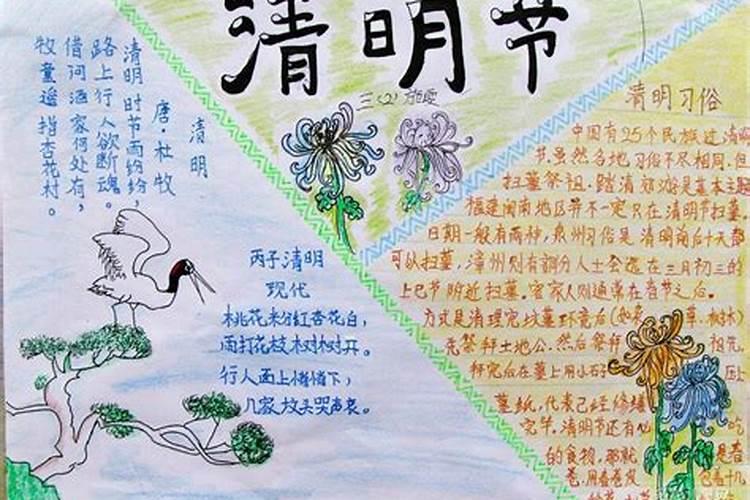 清明节
三(2) 施
清明
唐·杜牧
清明时节雨纷纷,
路上行人欲断魂。
借问酒家何处有,
牧童遥指杏花村。
丙子清明
现代
桃花粉红杏花白,
雨打花枝树树开。
行人面上悄悄下,
几家坟头哭声哀。
清明习俗
中国有25个民族过清明
节,虽然各地习俗不尽相同,但
扫墓祭祖、踏清郊游是基本主题
福建闽南地区并不一定只在清明节扫墓,
日期一般有两种,泉州习俗是清明前后十天都
可以扫墓,漳州则有部分人士会选在三月初三的
上巳节附近扫墓。客家人则通常在春节之后。
方式是清理完坟墓环境后(如杂草、树木)
先祭拜土地公,然后祭拜祖先,
拜完后在墓上用小石 压
墓纸,代表已经修缮
完毕。清明节还有 吃
的食物,那就 是春
卷,用春卷皮 包着